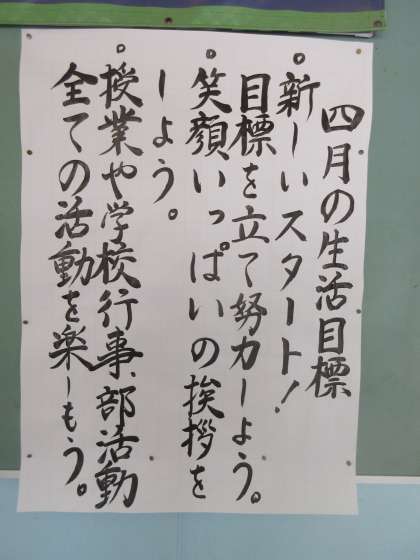 四月の生活目標
。新しいスタート!
目標を立て努力しよう。
。笑顔いっぱいの挨拶を
しよう。
。授業や学校行事、部活動
全ての活動を楽しもう。